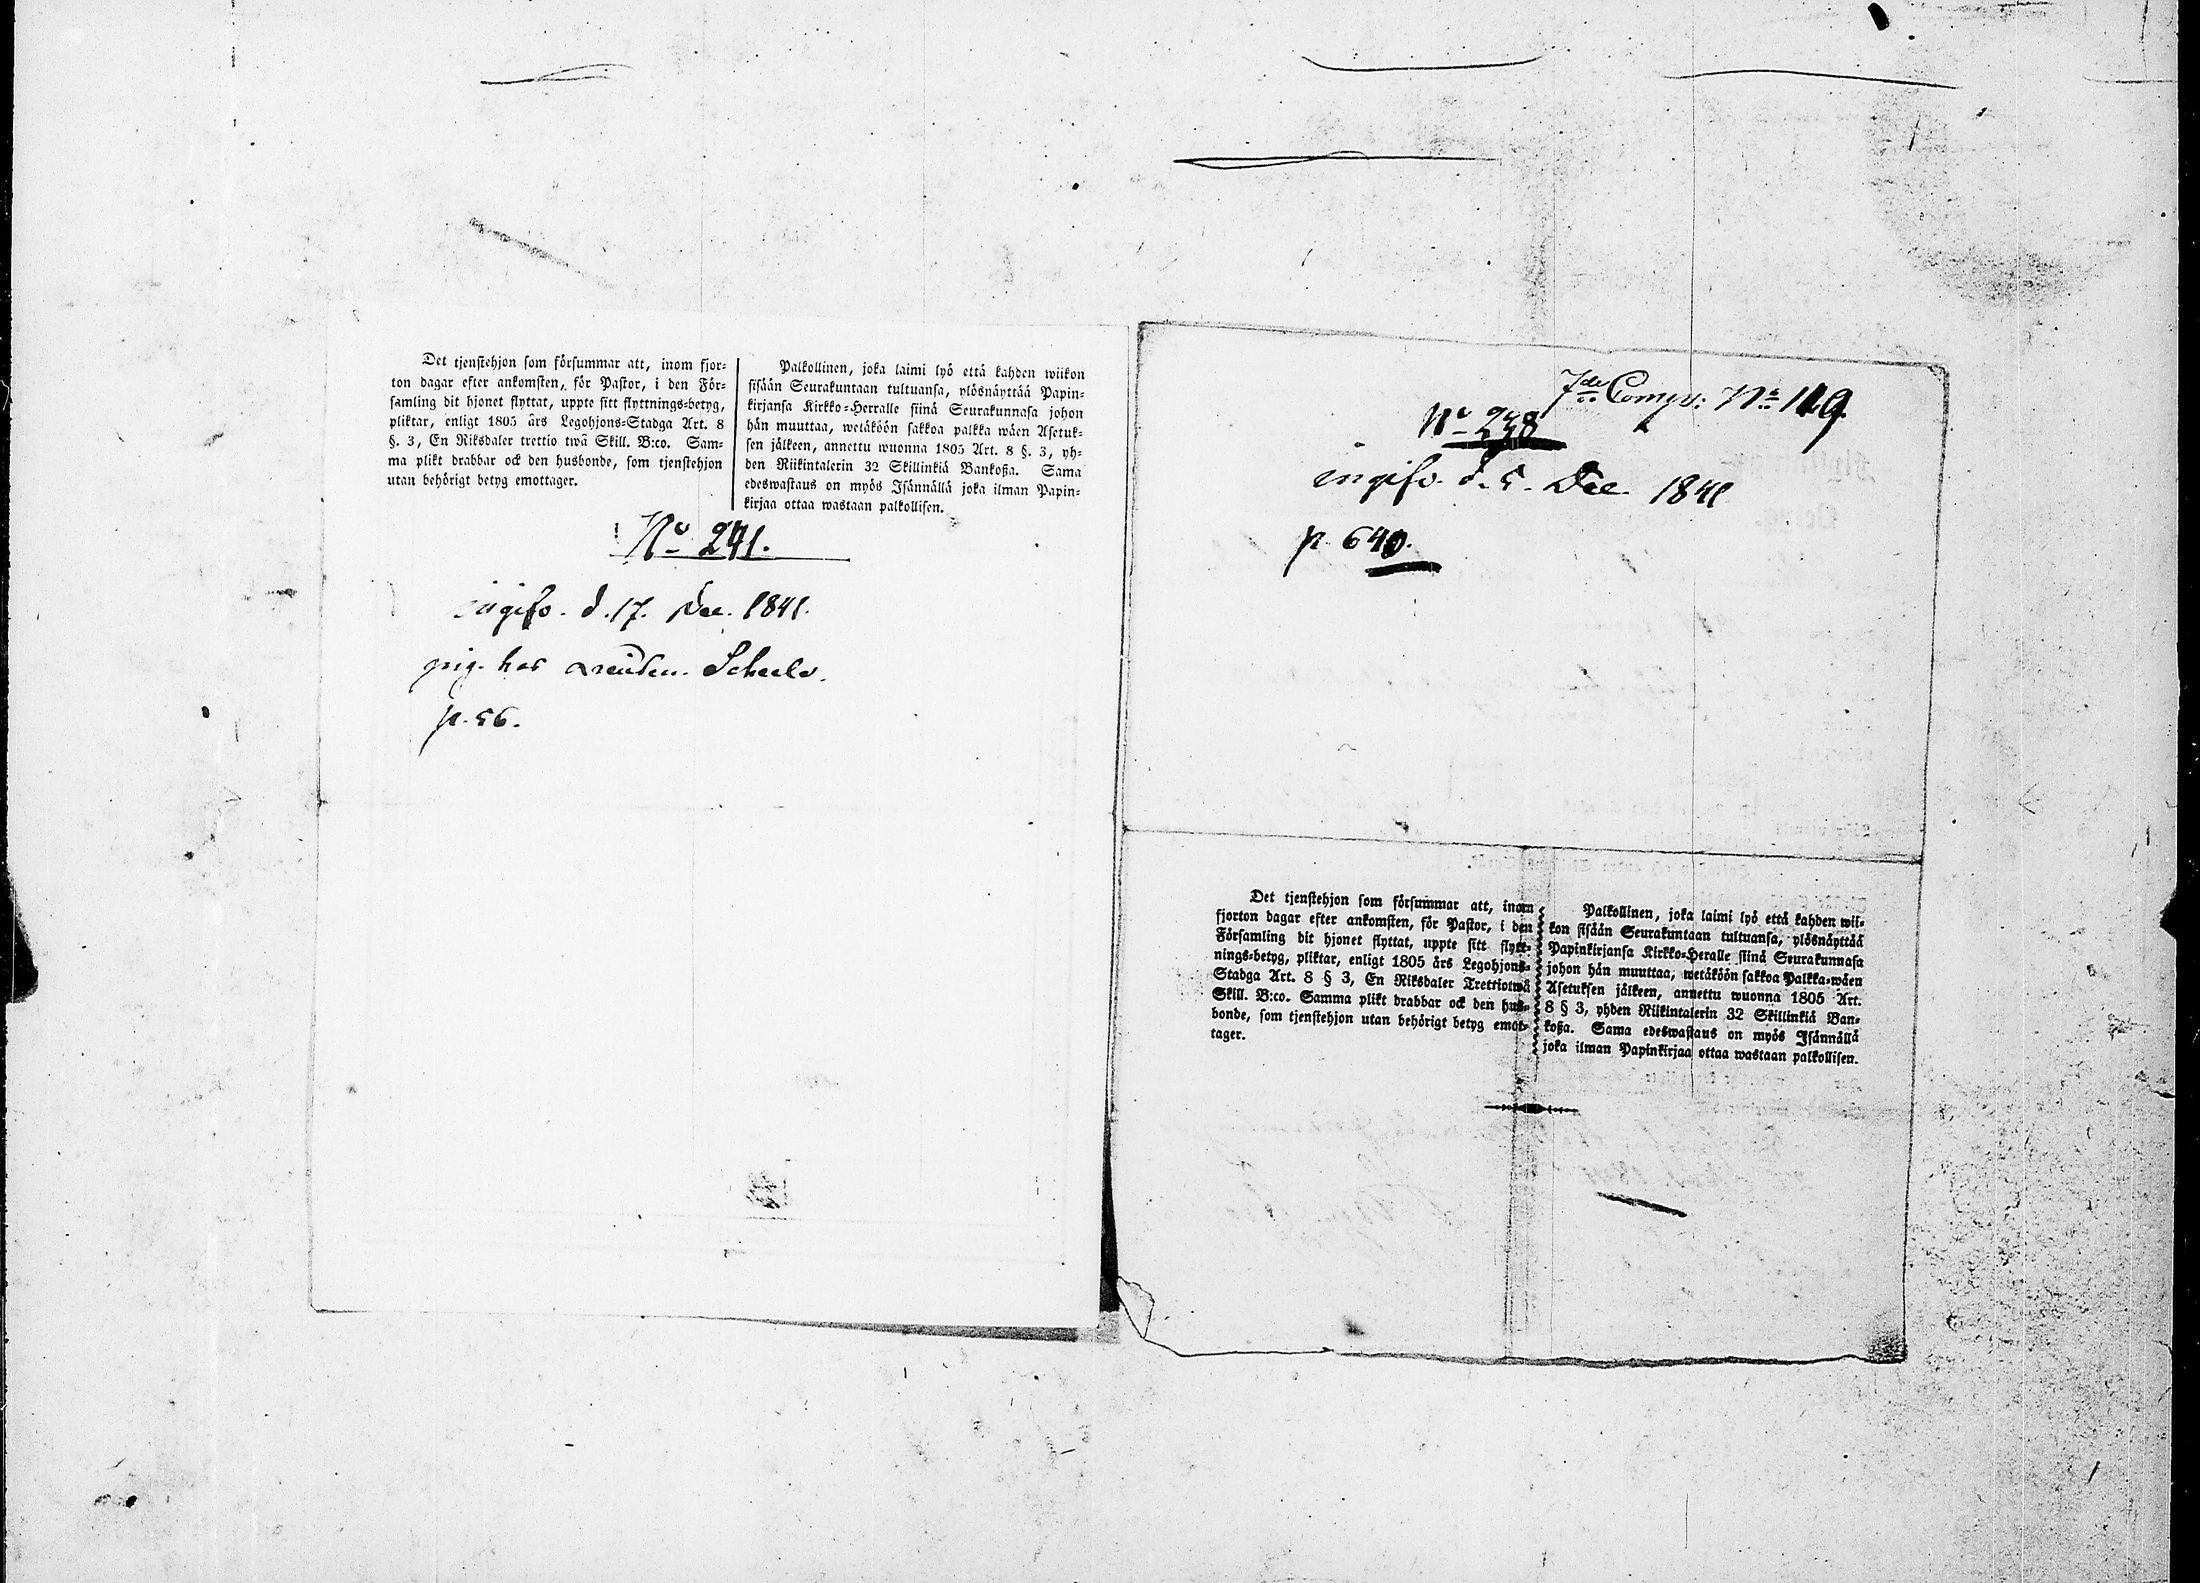 Det tjenstehjon som försummar att, inom fjor-
ton dagar efter ankomsten, för Pastor, i den För-
samling dit hjonet flyttat, uppte sitt flyttnings-betyg,
pliktar, enligt 1805 års Legohjons-Stadga Art. 8
§. 3, En Riksdaler trettio twå Skill. B:co. Sam-
ma plikt drabbar ock den husbonde, som tjenstehjon
utan behörigt betyg emottager.
Palkollinen, joka laimi lyö että kahden wiikon
sisään Seurakuntaan tultuansa, ylösnäyttää Papin-
kirjansa Kirkko-Herralle siinä Seurakunnasa johon
hän muuttaa, wetäköön sakkoa palkka wäen Asetuk-
sen jälkeen, annettu wuonna 1805 Art. 8 §. 3, yh-
den Riikintalerin 32 Skillinkiä Bankoßa. Sama
edeswastaus on myös Isännällä joka ilman Papin-
kirjaa ottaa wastaan palkollisen.
No 241.
ingifv. d. 17. Dec. 1841.
pig. hos Scheele.
p. 56.
7de Comp: No 119.
No 238
ingifv. d. 5. Dec. 1841
p. 640.
Det tjenstehjon som försummar att, inom
fjorton dagar efter ankomsten, för Pastor, i den
Församling dit hjonet flyttat, uppte sitt flytt-
nings-betyg, pliktar, enligt 1805 års Legohjons-
Stadga Art. 8 § 3, En Riksdaler Trettiotwå
Skill. B:co. Samma plikt drabbar ock den hus-
bonde, som tjenstehjon utan behörigt betyg emot-
tager.
Palkollinen, joka laimi lyö että kahden wii-
kon sisään Seurakuntaan tultuansa, ylösnäyttää
Papinkirjansa Kirkko-Heralle siinä Seurakunnasa
johon hän muuttaa, wetäköön sakkoa Palkka-wäen
Asetuksen jälkeen, annettu wuonna 1805 Art.
8 § 3, yhden Riikintalerin 32 Skillinkiä Ban-
koßa. Sama edeswastaus on myös Isännällä
joka ilman Papinkirjaa ottaa wastaan palkollisen.